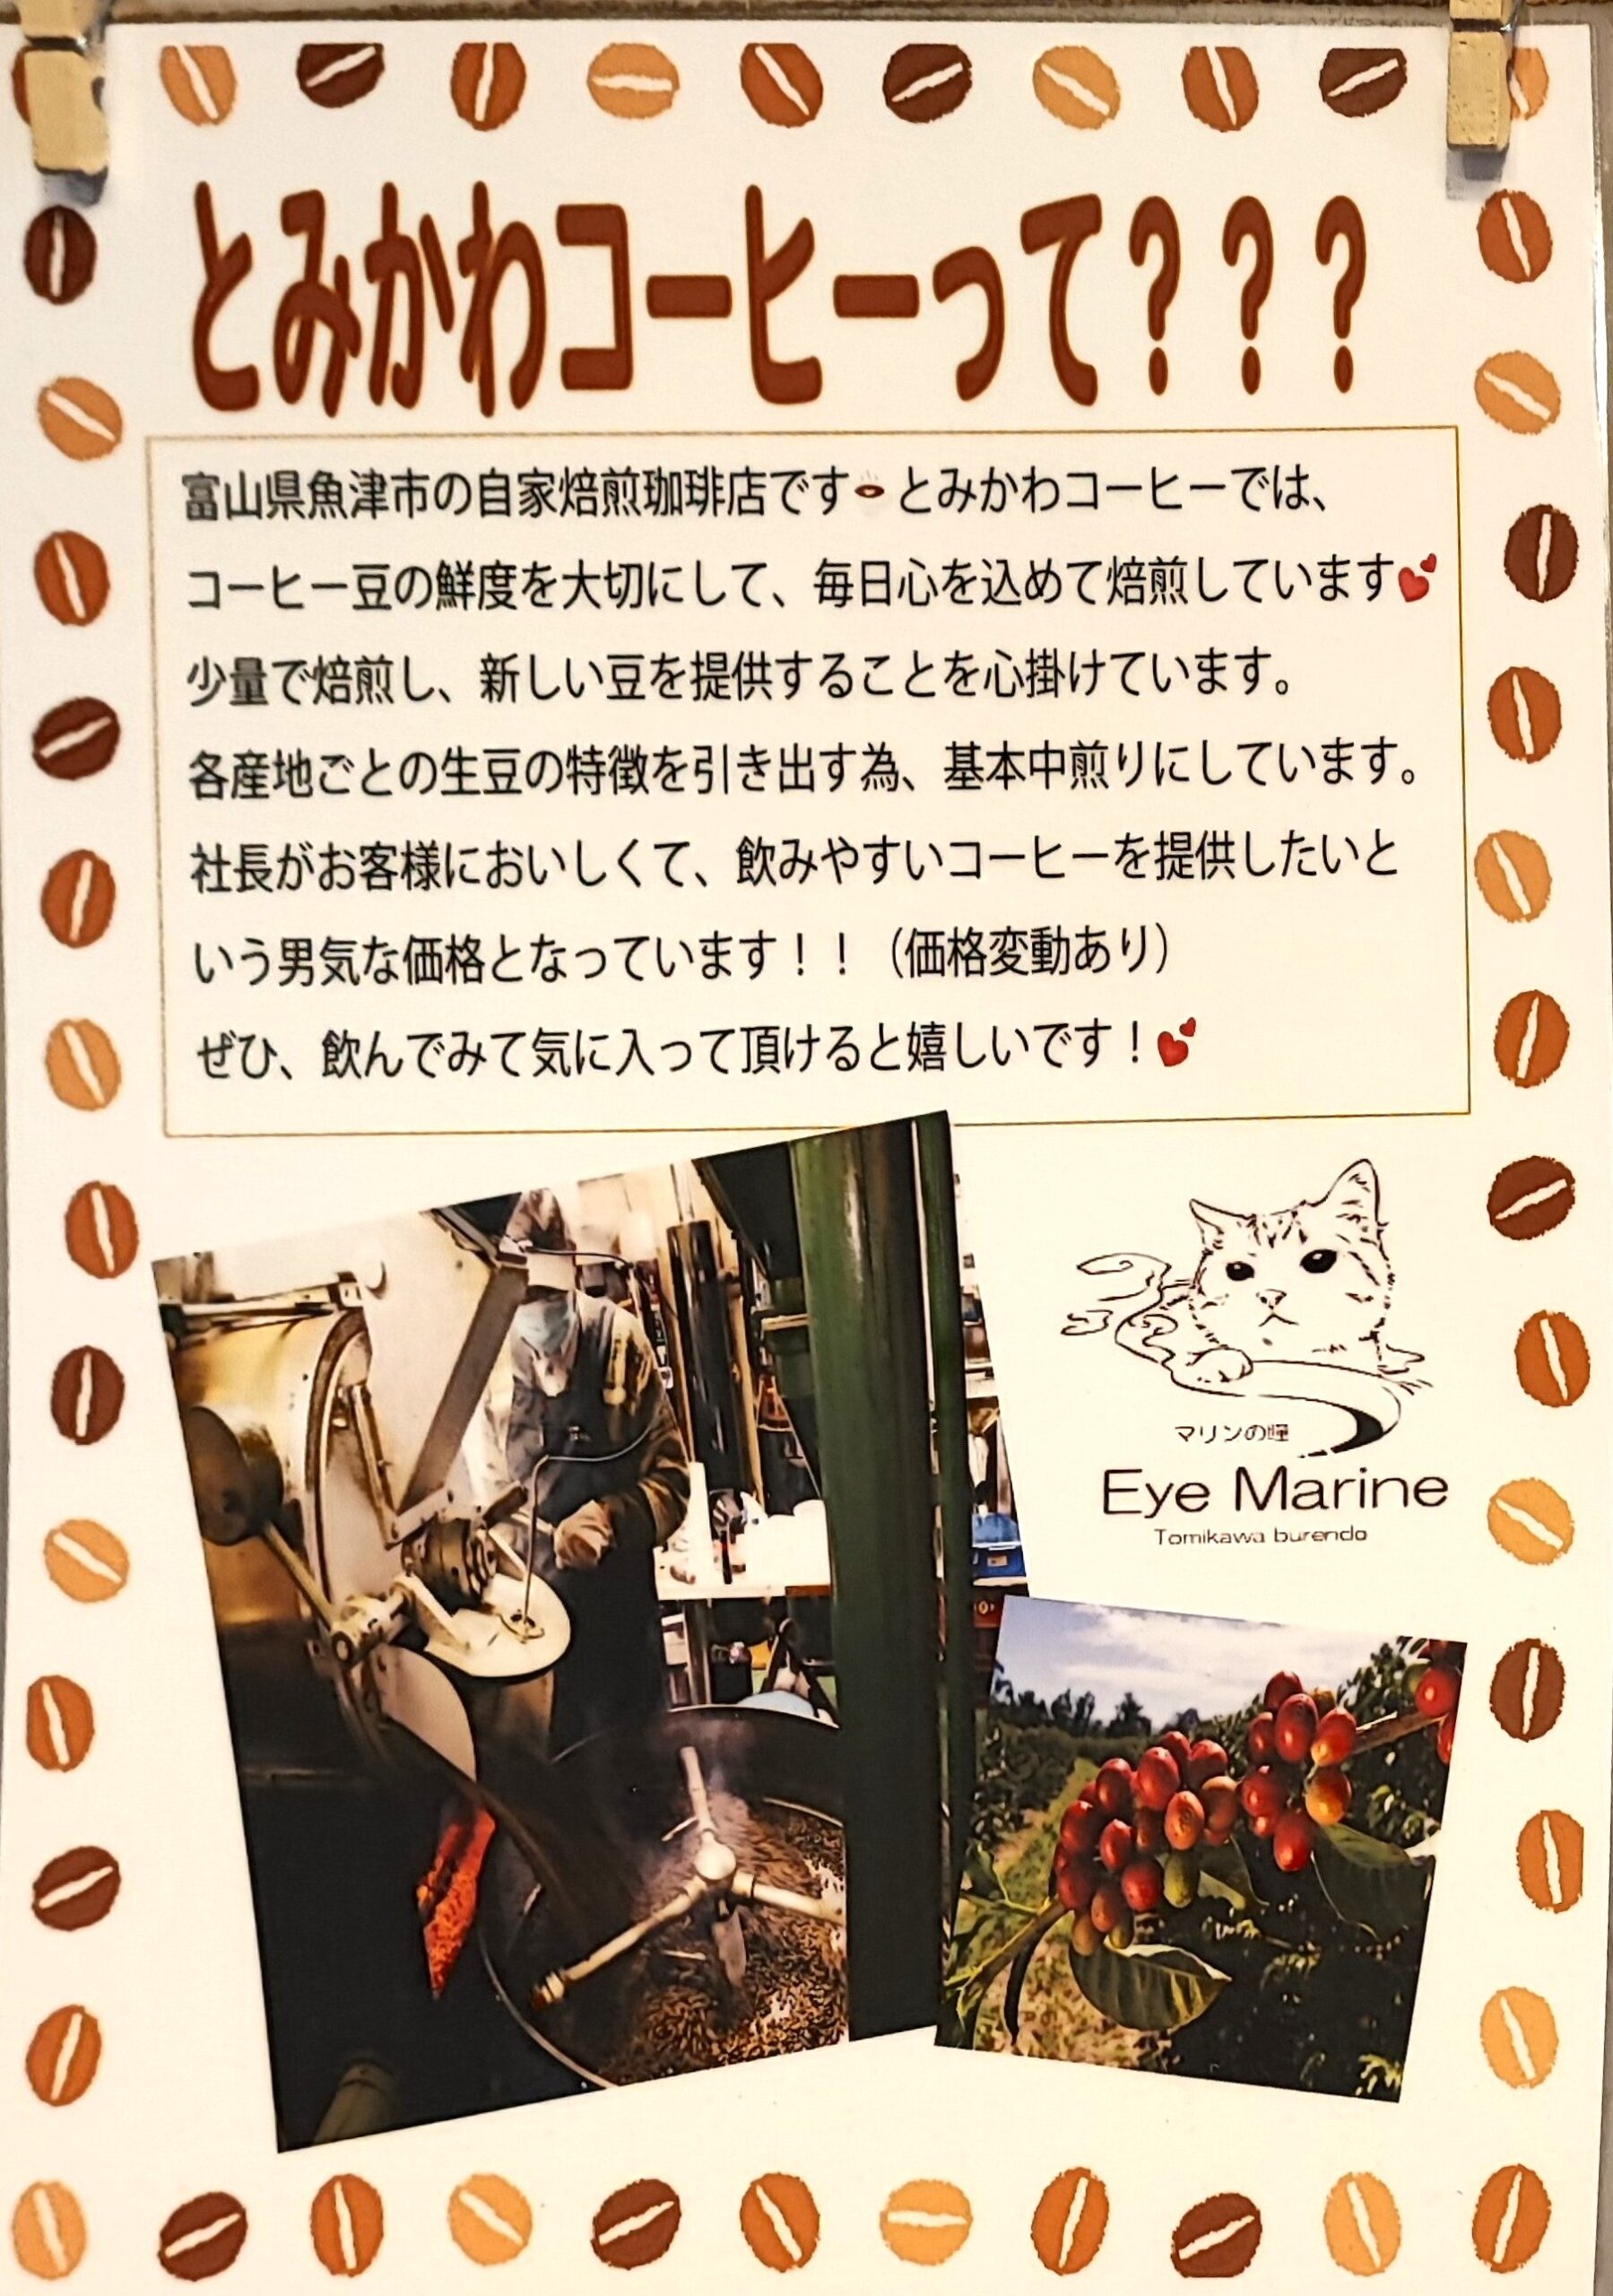 とみかわコーヒーって？？？
富山県魚津市の自家焙煎珈琲店です☕とみかわコーヒーでは、
コーヒー豆の鮮度を大切にして、毎日心を込めて焙煎しています💕
少量で焙煎し、新しい豆を提供することを心掛けています。
各産地ごとの生豆の特徴を引き出す為、基本中煎りにしています。
社長がお客様においしくて、飲みやすいコーヒーを提供したいと
いう男気な価格となっています！！（価格変動あり）
ぜひ、飲んでみて気に入って頂けると嬉しいです！💕
マリンの瞳
Eye Marine
Tomikawa burendo